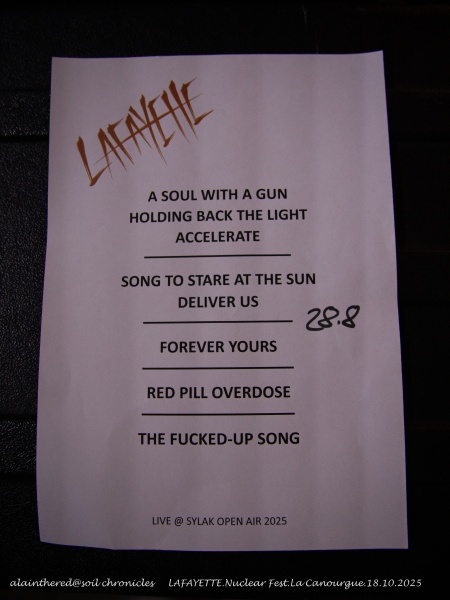 LAFAYETTE
A SOUL WITH A GUN
HOLDING BACK THE LIGHT
ACCELERATE
SONG TO STARE AT THE SUN
DELIVER US
28.8
FOREVER YOURS
RED PILL OVERDOSE
THE FUCKED-UP SONG
LIVE @ SYLAK OPEN AIR 2025
alainthered@soil chronicles LAFAYETTE.Nuclear Fest.La Canourgue.18.10.2025